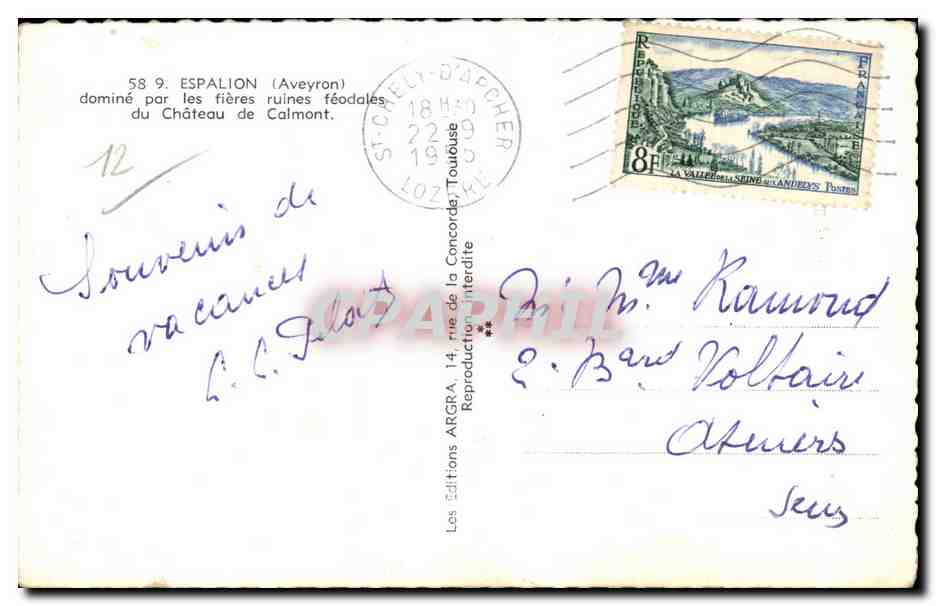 58 9. ESPALION (Aveyron)
dominé par les fières ruines féodales
du Château de Calmont.
12
Souvenir de
vacances
ST-CHELY-D'APCHER
18 H
22-9
19
LOZERE
REPUBLIQUE FRANCAISE
8F
LA VALLEE DE LA SEINE AUX ANDELYS POSTES
Les Editions ARGRA, 14, rue de la Concorde, Toulouse
Reproduction interdite
CPAPHIL
M. Mme Ramond
2. Bard Voltaire
Asniers
Seine